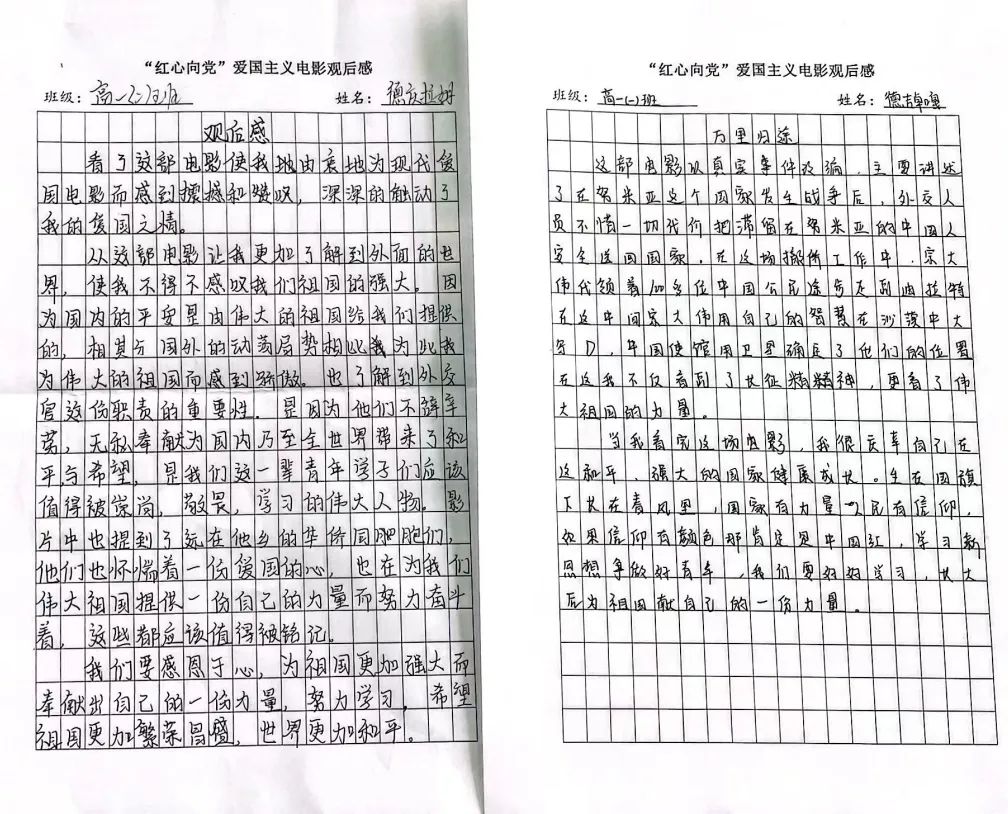 “红心向党”爱国主义电影观后感
班级：高一(二)班
姓名：德庆拉姆
观后感
看了这部电影使我地由衷地为现代爱
国电影而感到震撼和赞叹，深深的触动了
我的爱国之情。
从这部电影让我更加了解到外面的世
界，使我不得不感叹我们祖国的强大。因
为国内的平安是由伟大的祖国给我们提供
的，相其与国外的动荡局势相比我为此我
为伟大的祖国而感到骄傲。也了解到外交
官这份职责的重要性．是因为他们不辞辛
劳，无私奉献为国内乃至全世界带来了和
平与希望，是我们这一辈青年学子们应该
值得被崇尚，敬畏，学习的伟大人物。影
片中也提到了远在他乡的华侨同胞胞们，
他们也怀惴着一份爱国的心，也在为我们
伟大祖国提供一份自己的力量而努力奋斗
着，这些都应该值得被铭记。
我们要感恩于心，为祖国更加强大而
奉献出自己的一份力量，努力学习，希望
祖国更加繁荣昌盛，世界更加和平。
“红心向党”爱国主义电影观后感
班级：高一(一)班
姓名：德吉卓嘎
万里归途
这部电影以真实事件改编，主要讲述
了在努米亚这个国家发生战争后，外交人
员不惜一切代价把滞留在努米亚的中国人
安全送回国家．在这场撤侨工作中，宗大
伟代领着100多位中国公民途步走到迪拉特
在这中间宗大伟用自己的智慧在沙漠中大
写D，中国使馆用卫星确定了他们的位置
在这我不仅看到了长征精精神，更看了伟
大祖国的力量。
当我看完这场电影，我很庆幸自己在
这和平、强大的国家健康成长。生在国旗
下长在春风里，国家有力量人民有信仰．
如果信仰有颜色那肯定是中国红，学习新
思想争做好青年，我们要好好学习，长大
后为祖国献自己的一份力量。